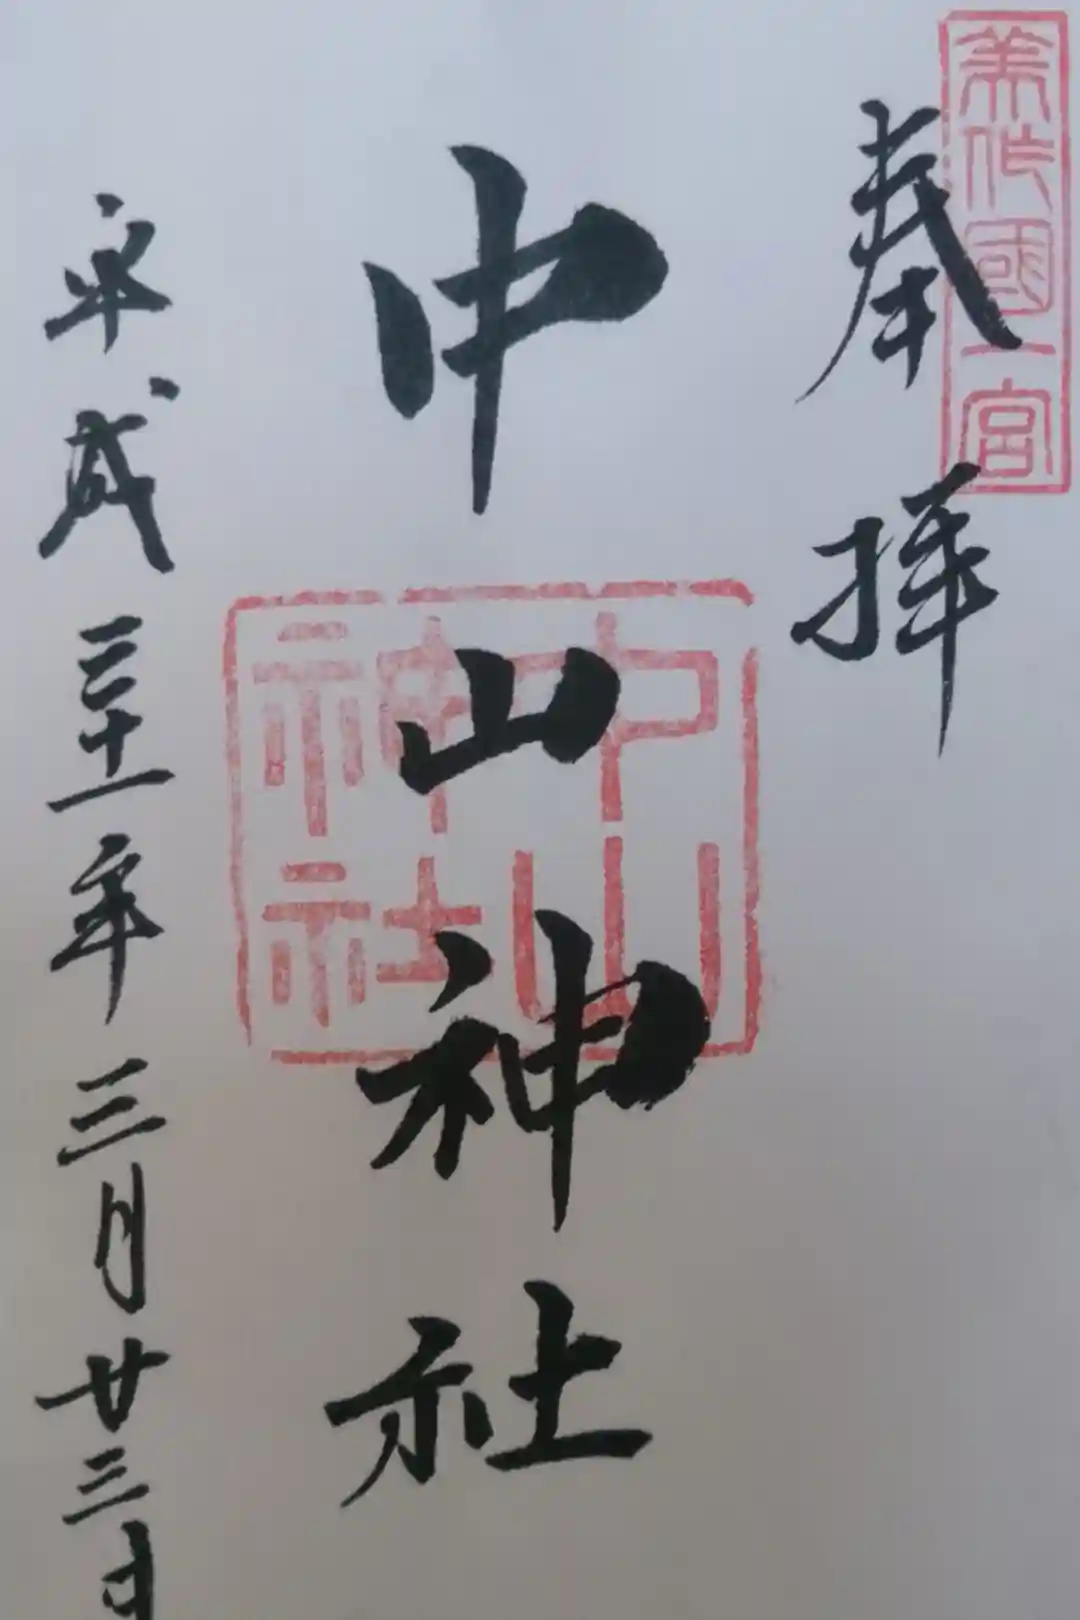 美作國一宮
奉拝
中山神社
中山神社
平成三十一年三月廿三日